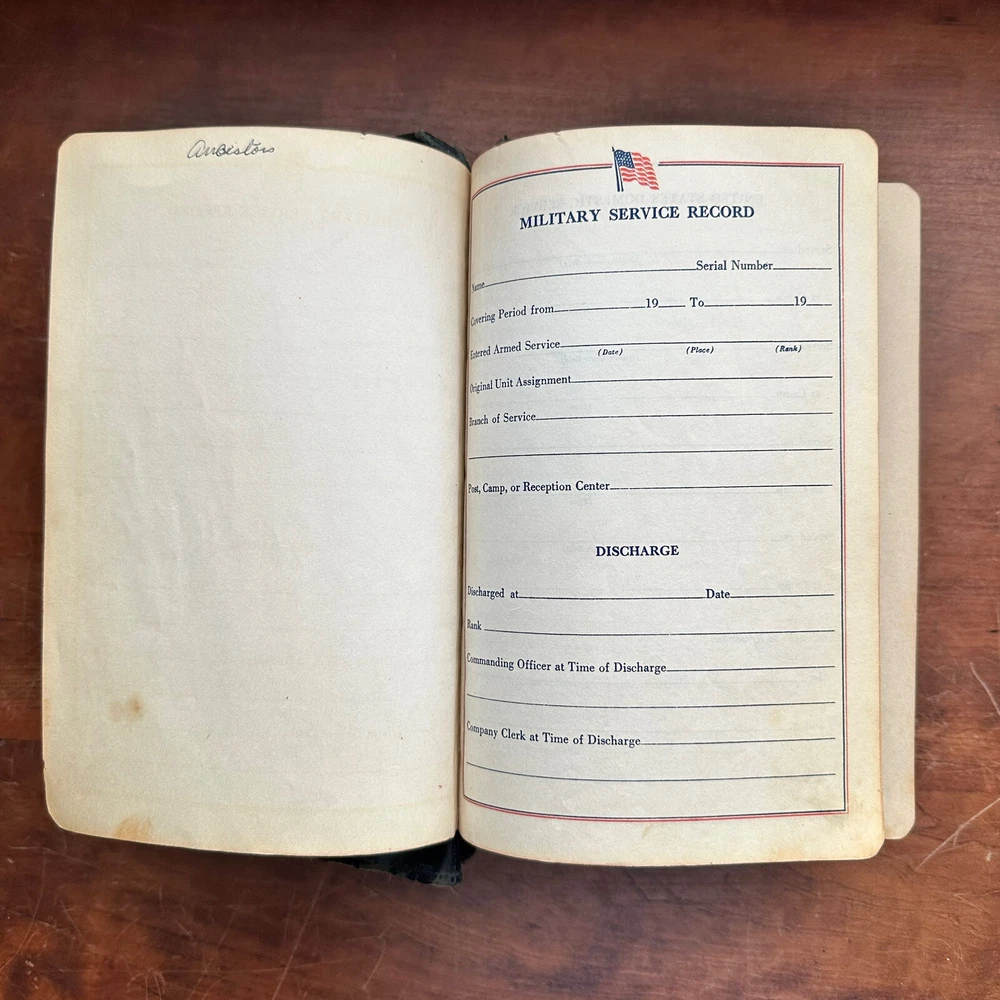 Ansestors
MILITARY SERVICE RECORD
Name Serial Number
Covering Period from 19 To 19
Entered Armed Service
(Date) (Place) (Rank)
Original Unit Assignment
Branch of Service
Post, Camp, or Reception Center
DISCHARGE
Discharged at Date
Rank
Commanding Officer at Time of Discharge
Company Clerk at Time of Discharge